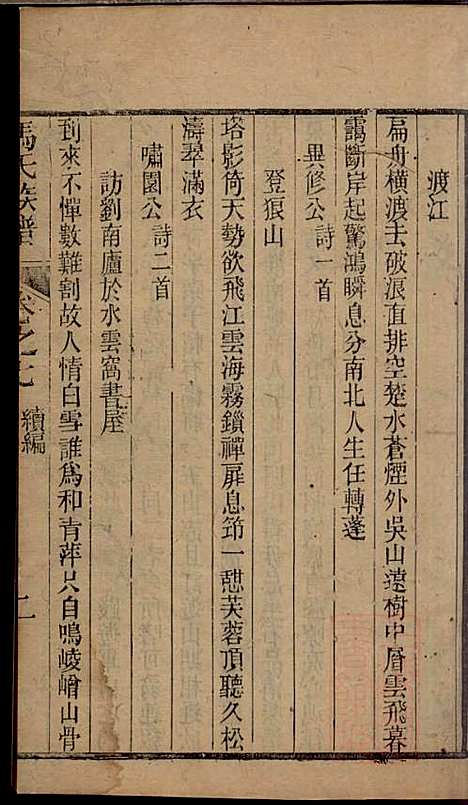 渡江
扁舟橫渡去破浪直排空楚水蒼煙外吳山遠樹中層雲飛暮
靄斷岸起驚鴻瞬息分南北人生任轉蓬
異修公詩一首
登狼山
塔影倚天勢欲飛江雲海霧鎖禪扉息筇一憩芙蓉頂聽久松
濤翠滿衣
嘯園公詩二首
訪劉南廬於水雲窩書屋
到來不憚數難割故人情白雪誰為和青萍只自鳴崚嶒山骨
馮氏族譜
卷之七
續編
二